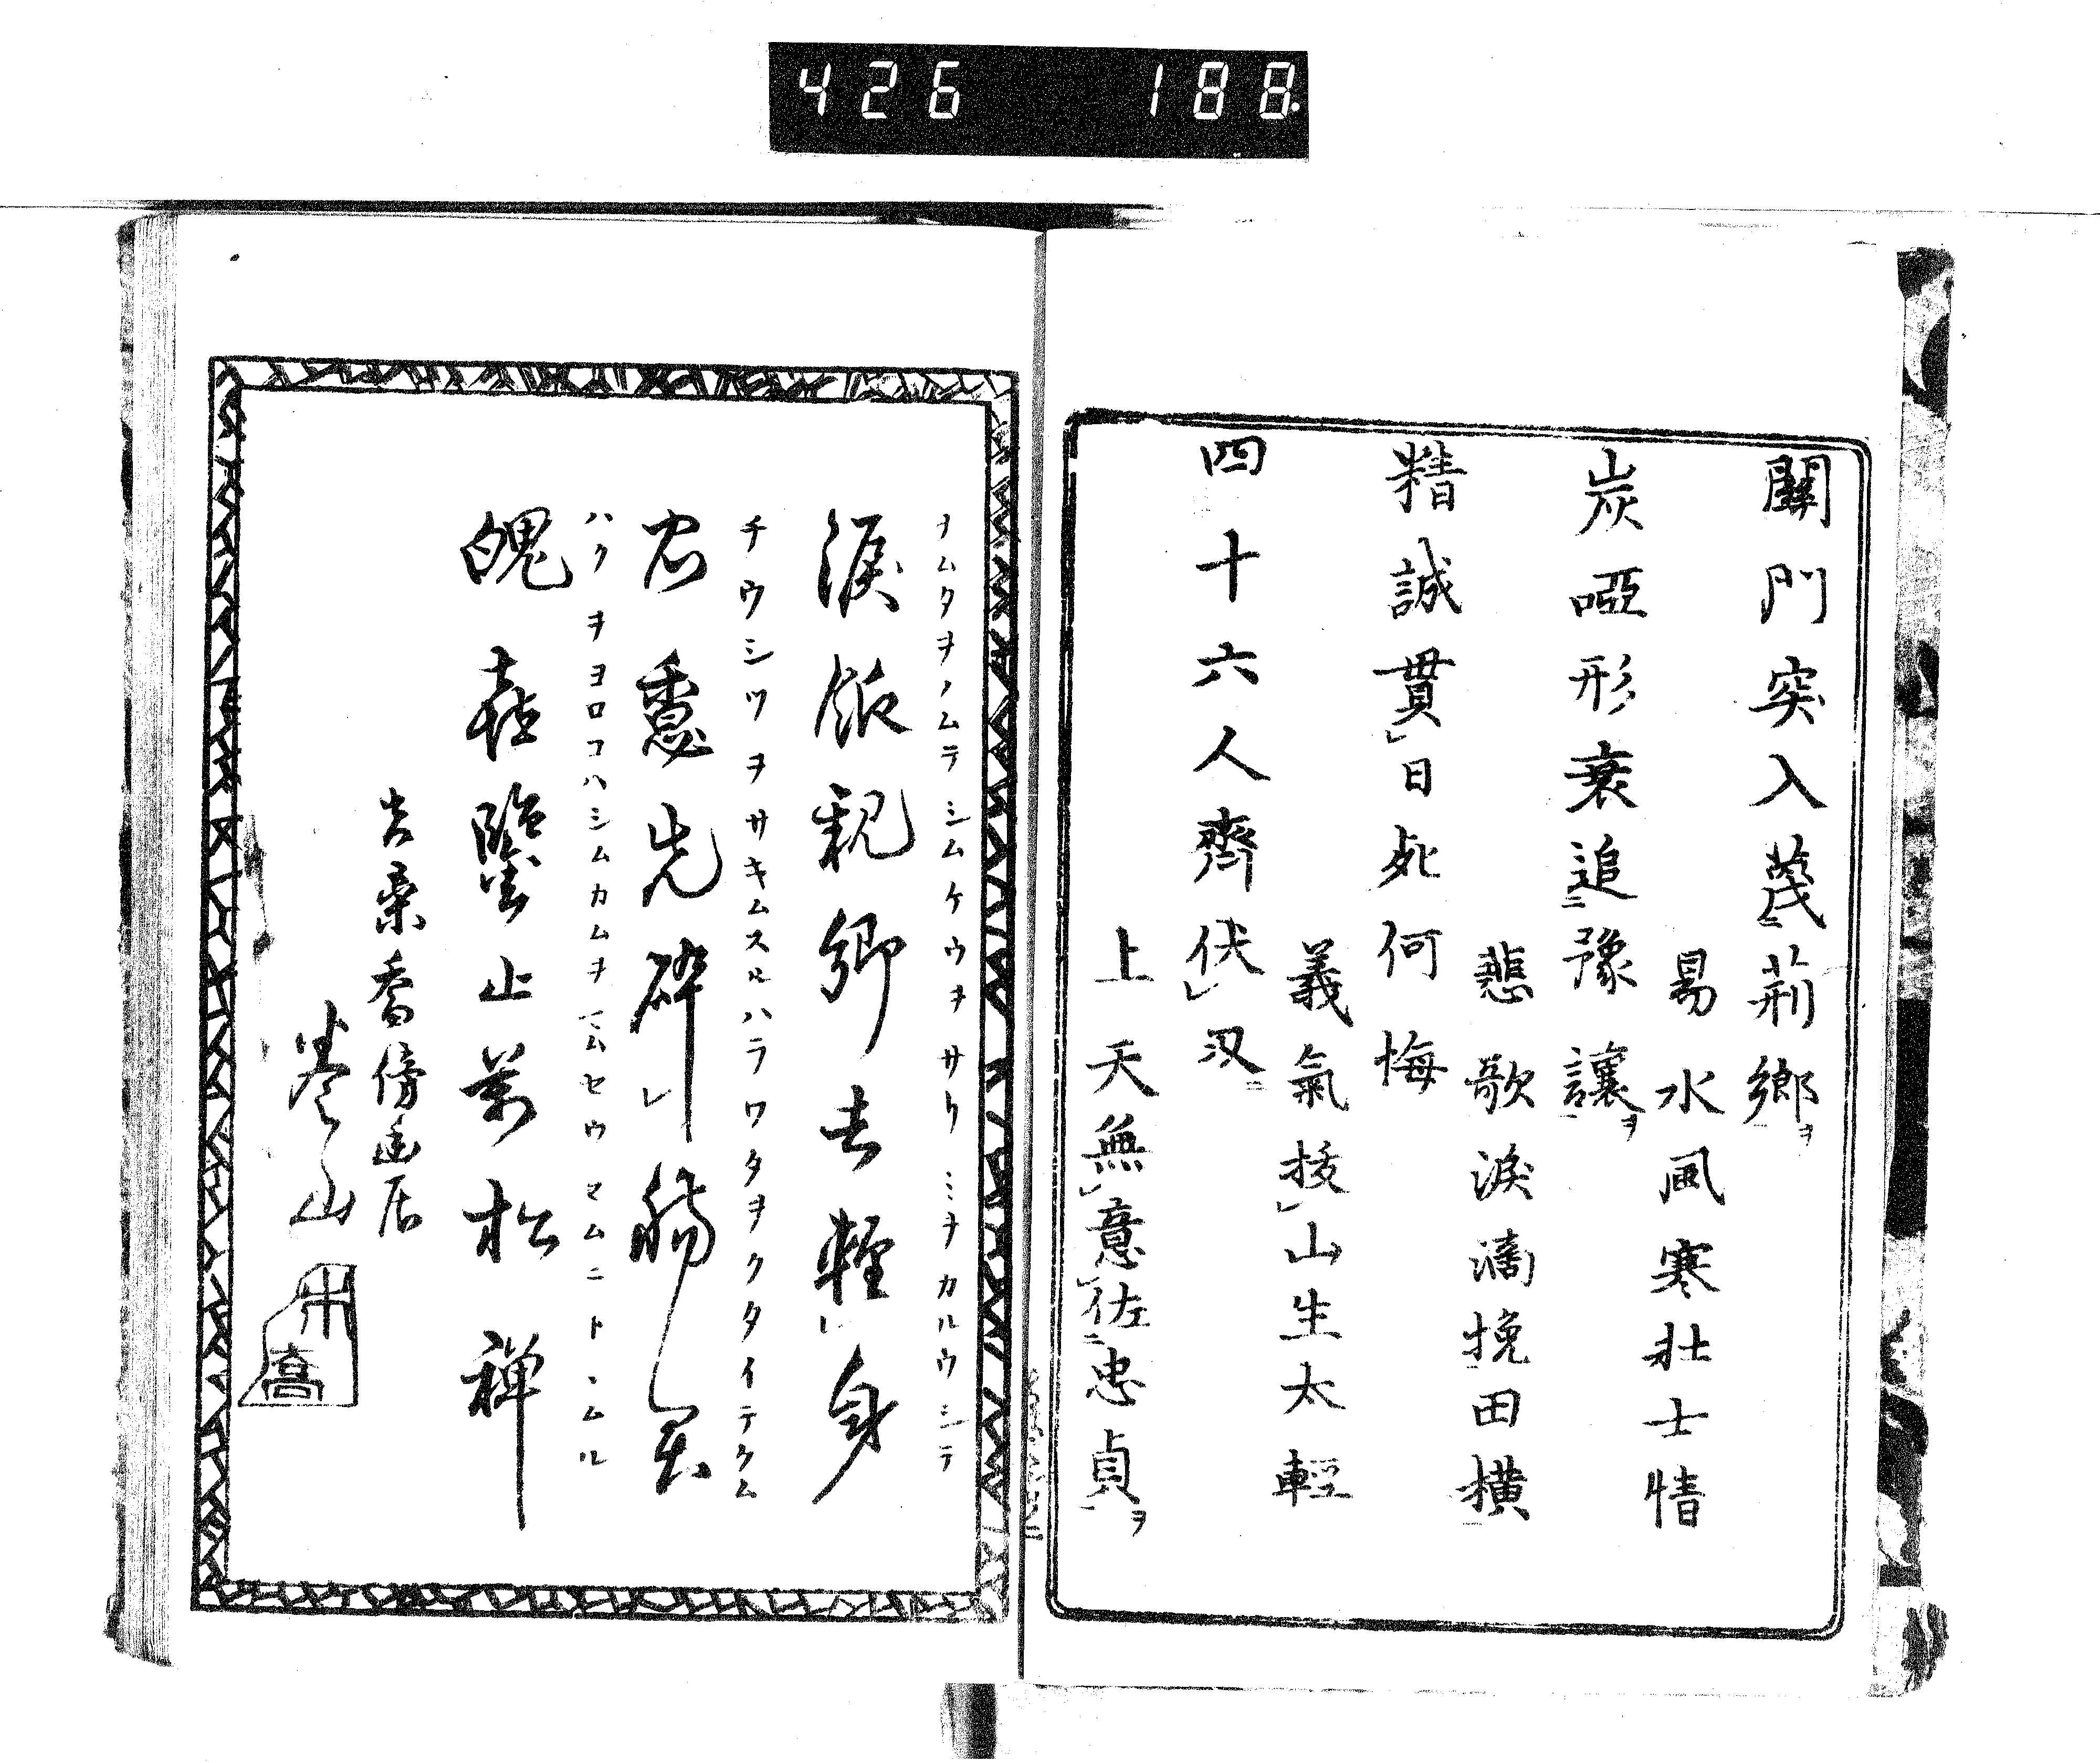 關門突入蔑荊郷ヲ
易水風寒壮士情
炭啞形衰追豫讓ヲ
悲歌涙滴挽田横
精誠貫日死何悔
義氣拔山生太輕
四十六人齊伏刃
上天無意佐忠貞ヲ
ナムタヲノムテシムケウヲサリミヲカルウシテ
涙飯親郷去輕身
チウシツヲサキムスルハラワタヲクタイテクム
先碎腸君
ハクヲヨロコハシムカムヲマムセウセムニトヽムル
魄喜鑒止萬松禅
傍幽居
山
喬
426 188